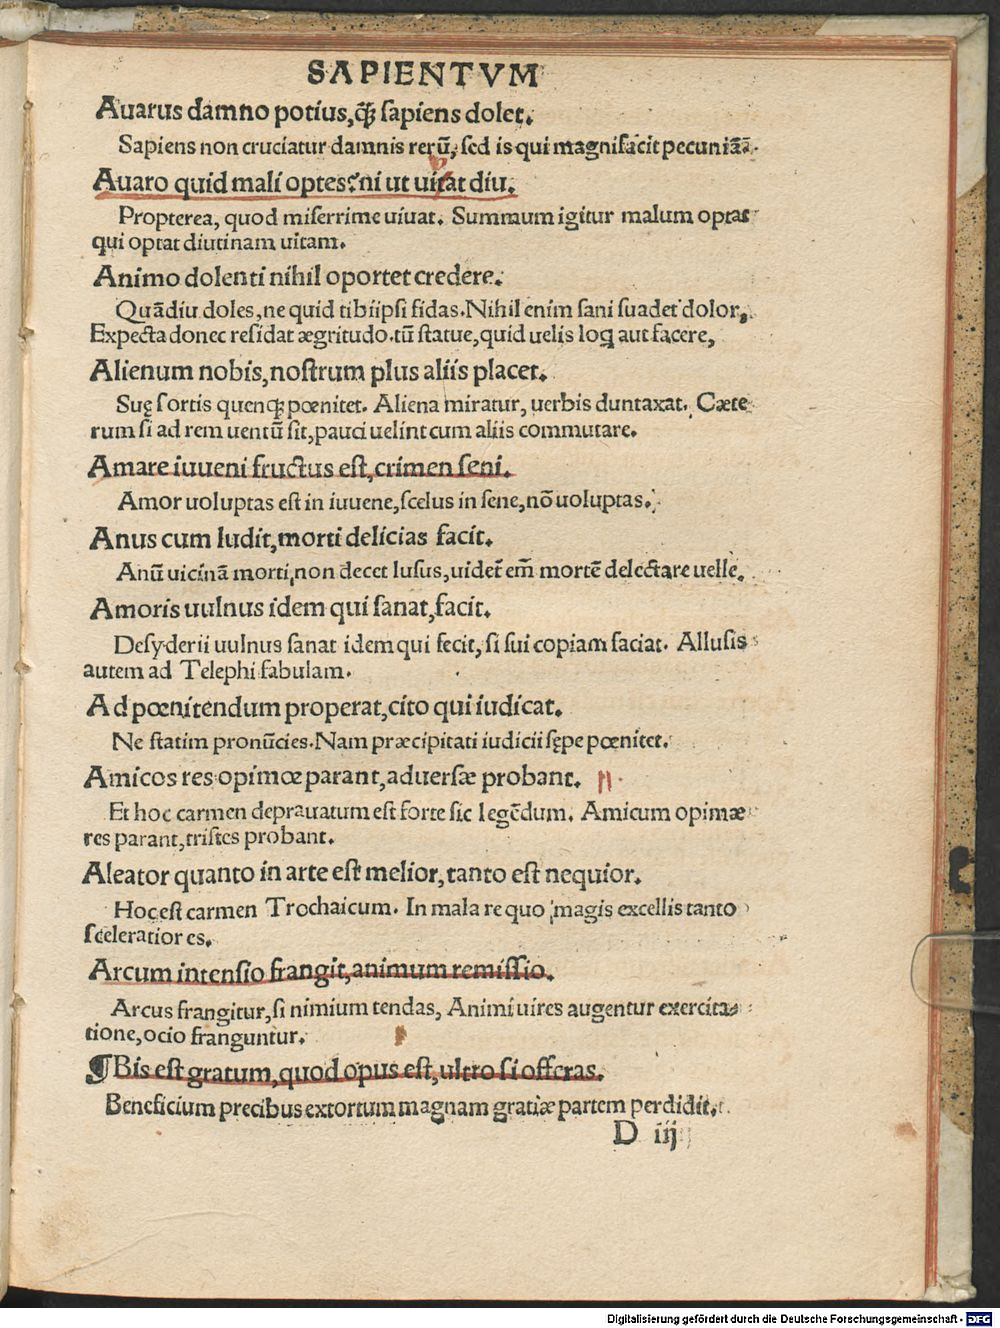 SAPIENTVM
Auarus damno potius, q̃ꝫ sapiens dolet.
Sapiens non cruciatur damnis rerũ, sed is qui magnifacit pecuniã.
Auaro quid mali optes? ni ut uiuat diu.
Propterea, quod miserrime uiuat. Summum igitur malum optat
qui optat diutinam uitam.
Animo dolenti nihil oportet credere.
Quãdiu doles, ne quid tibiipsi fidas. Nihil enim sani suadet dolor,
Expecta donec residat ægritudo. tũ statue, quid uelis loq̃ aut facere,
Alienum nobis, nostrum plus aliis placet.
Suę sortis quenqꝫ pœnitet. Aliena miratur, uerbis duntaxat. Cæte
rum si ad rem uentũ sit, pauci uelint cum aliis commutare.
Amare iuueni fructus est, crimen seni.
Amor uoluptas est in iuuene, scelus in sene, nõ uoluptas.
Anus cum ludit, morti delicias facit.
Anũ uicinã morti, non decet lusus, uidet em̃ mortẽ delectare uelle.
Amoris uulnus idem qui sanat, facit.
Desyderii uulnus sanat idem qui fecit, si sui copiam faciat. Allusis
autem ad Telephi fabulam.
Ad pœnitendum properat, cito qui iudicat.
Ne statim pronũcies. Nam præcipitati iudicii sępe pœnitet.
Amicos res opimœ parant, aduersæ probant.
Et hoc carmen deprauatum est forte sic legẽdum. Amicum opimæ
res parant, tristes probant.
Aleator quanto in arte est melior, tanto est nequior.
Hoc est carmen Trochaicum. In mala re quo magis excellis tanto
sceleratior es.
Arcum intensio frangit, animum remissio.
Arcus frangitur, si nimium tendas, Animi uires augentur exercita-
tione, ocio franguntur.
¶ Bis est gratum, quod opus est, ultro si offeras.
Beneficium precibus extortum magnam gratiæ partem perdidit.
D iij
Digitalisierung gefördert durch die Deutsche Forschungsgemeinschaft - DFG